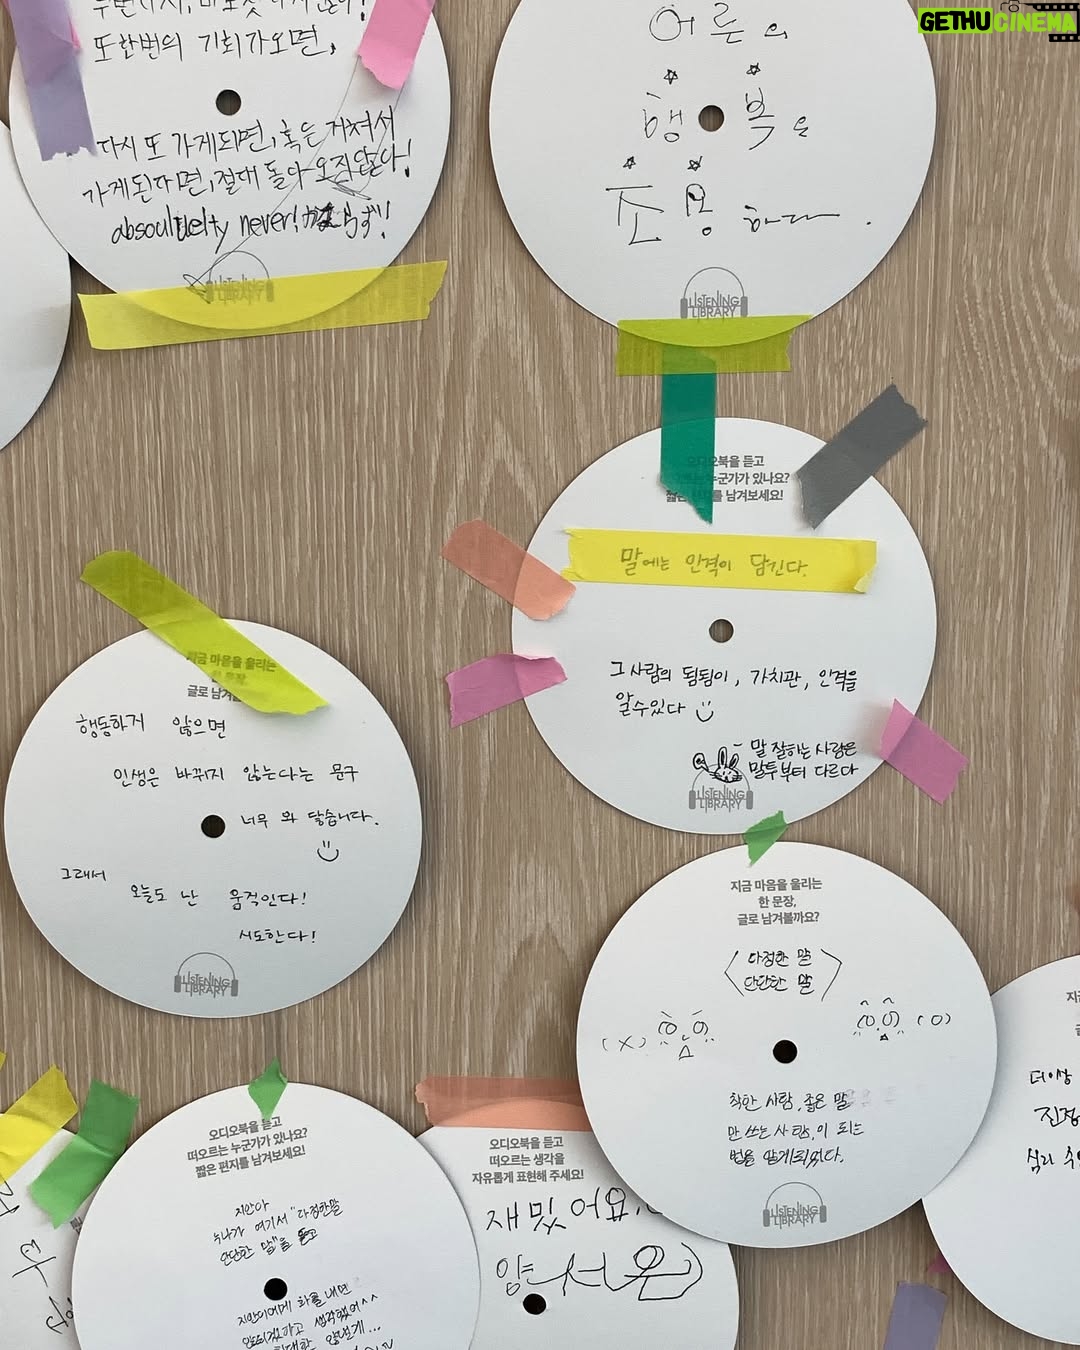 GETHUCINEMA
또 한번의 기회가 오면,
다시 또 가게되면, 혹은 거쳐서
가게된다면, 절대 돌아오지않아!
absoulutelty never!
LISTENING
LIBRARY
어른의
행복은
조용하다.
LISTENING
LIBRARY
오디오북을 듣고
누군가가 있나요?
짧은 편지를 남겨보세요!
말에는 인격이 담긴다.
그 사람의 됨됨이, 가치관, 인격을
알 수 있다
말 잘하는 사람은
말투부터 다르다
LISTENING
LIBRARY
지금 마음을 울리는
한 문장,
글로 남겨
행동하지 않으면
인생은 바뀌지 않는다는 문구
너무 와 닿습니다.
그래서
오늘도 난 움직인다!
시도한다!
LISTENING
LIBRARY
지금 마음을 울리는
한 문장,
글로 남겨볼까요?
<다정한 말
단단한 말>
(X) (O)
착한 사람, 좋은 말
만 쓰는 사람, 이 되는
법을 알게되었다.
LISTENING
LIBRARY
오디오북을 듣고
떠오르는 누군가가 있나요?
짧은 편지를 남겨보세요!
지안아
누나가 여기서 "다정한말
단단한 말"을 듣고
지안이에게 화를 내면
안되겠다고 생각했어^^
오디오북을 듣고
떠오르는 생각을
자유롭게 표현해 주세요!
재밌어요.
양서윤
더이상